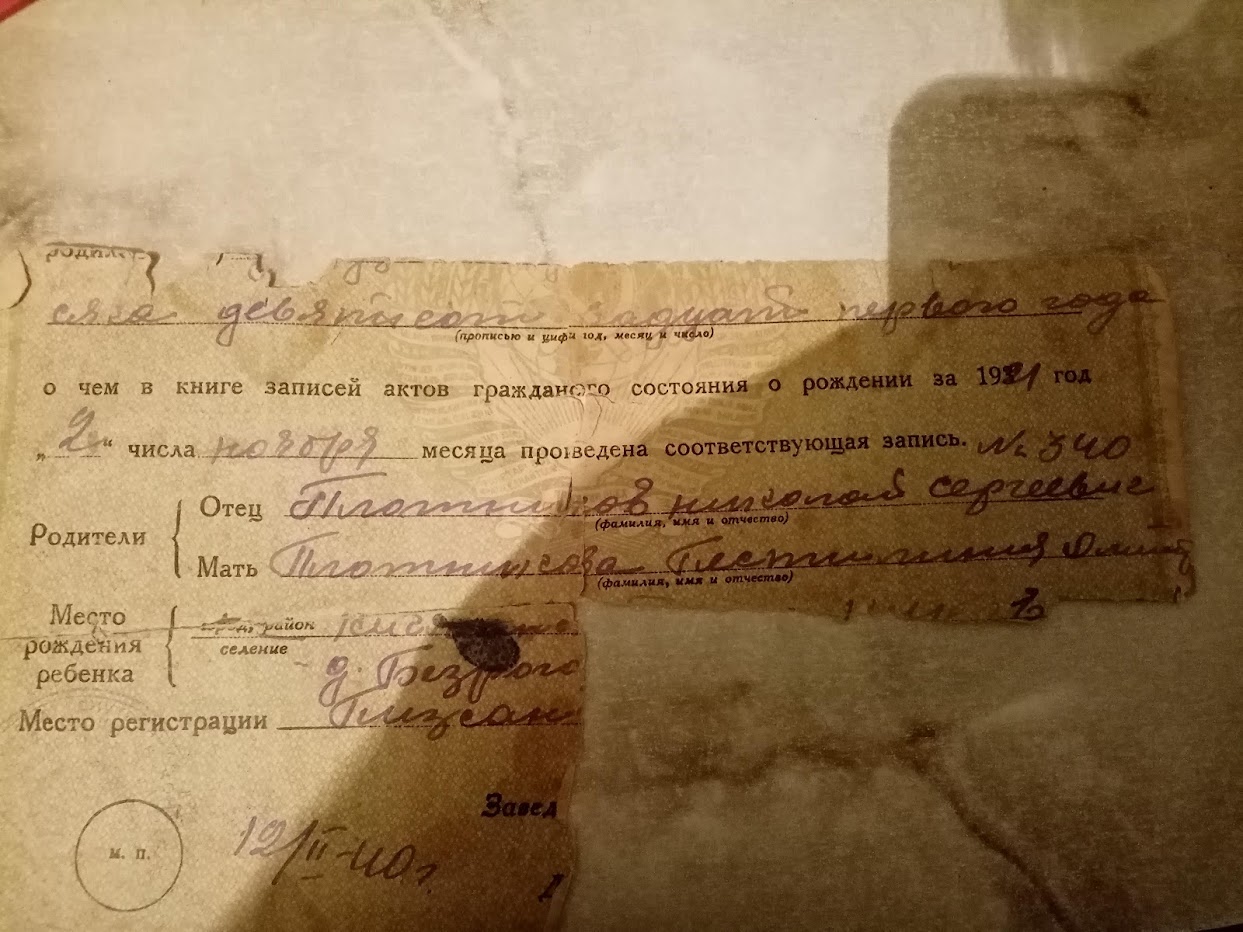 сяца девятьсот двадцать первого года
(прописью и циф год, месяц и число)
о чем в книге записей актов гражданого состояния о рождении за 1921 год
„2“ числа ноября месяца проведена соответствующая запись. № 340
Родители
Отец Плотников Николай Сергеевич
(фамилия, имя и отчество)
Мать Плотникова
(фамилия, имя и отчество)
Место рождения ребенка
район
селение
д. Безрого
Место регистрации
Завед
М. П.
12/II-40 г.